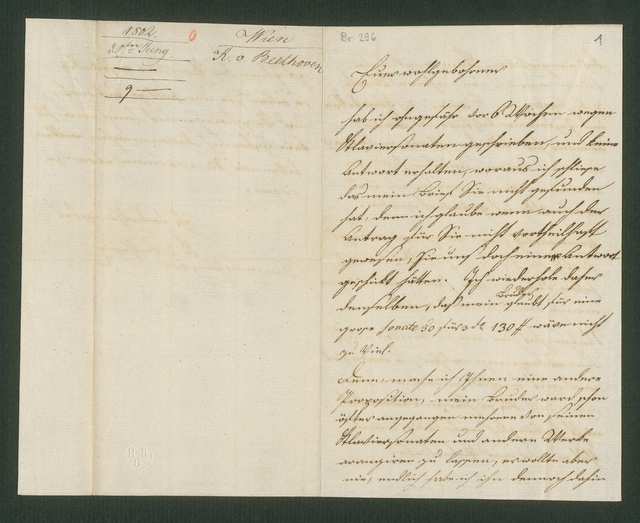 1802.
Jung
9
Wien
K. v. Beethoven
Br. 296
1
Euer wohlgebohrnen
hab ich ohngefähr vor 6 Wochen wegen
Klaviersonaten geschrieben, und keine
Antwort erhalten, woraus ich schließe
das mein Brief Sie nicht gefunden
hat, denn ich glaube wenn auch der
Antrag für Sie nicht vortheilhaft
gewesen, Sie uns doch eine Antwort
geschikt hätten. Ich wiederhole daher
denselben, daß mein Bruder glaubt, für eine
große Sonate 50 für 3 de 130 ff wäre nicht
zu Viel.
Denn mache ich Ihnen eine andere
Proposition, mein Bruder ward schon
öfter angegangen mehrere von seinen
Klaviersonaten und andern Werke
arangiren zu lassen, er wollte aber
nie, endlich habe ich ihn dennoch dahin